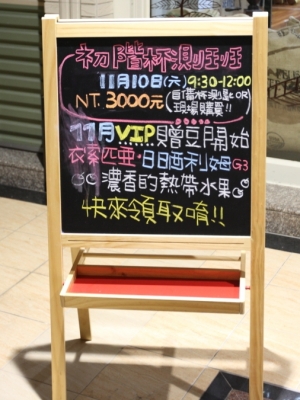 初階杯測班班
11月10日(六) 9:30-12:00
NT. 3000元 (自備杯測匙OR
現場購買!!
11月VIP贈豆開始
衣索匹亞·日日晒利姆G3
濃香的熱帶水果
快來領取唷!!